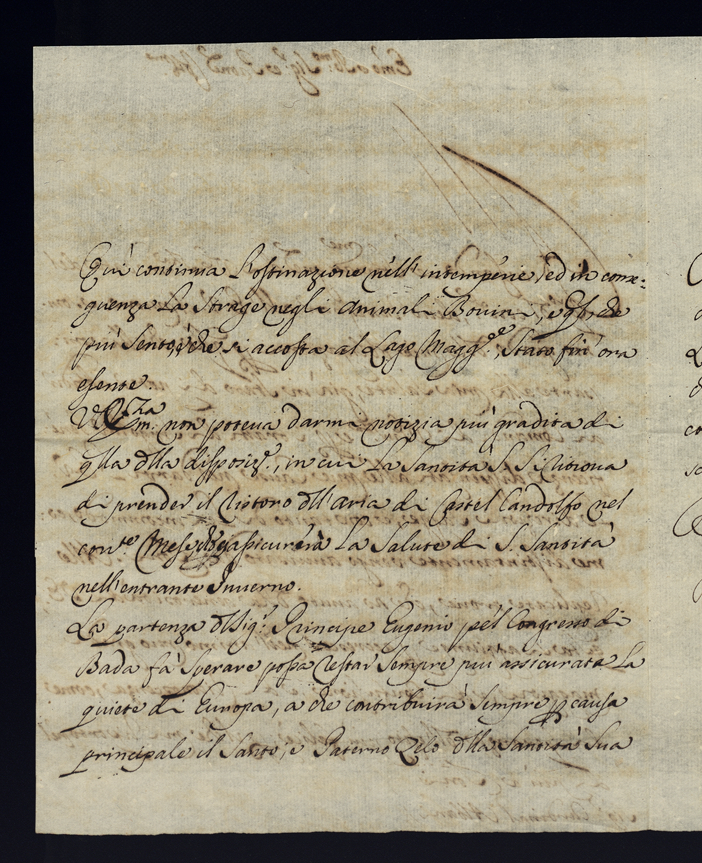 Qui continua l'ostinazione nell'intemperie, ed in conse-
guenza La Strage negli Animali Bovini, e
più sento, che si accosta al Lago Magg.re, stato fin'ora
esente.
V. Em.za non poteva darmi notizia più gradita di
q̃lla d̃lla disposiz.e, in cui La Santità S. si ritrova
di prender il ristoro d̃ll'Aria di Castel Gandolfo nel
corr.te Mese, che assicurerà La Salute di S. Santità
nell'entrante Inverno.
La partenza d̃l Sig.r Principe Eugenio pel Congresso di
Bada fà sperare possa restar sempre più assicurata La
quiete di Europa, a che contribuirà sempre p causa
principale il Santo, e Paterno Zelo d̃lla Santità Sua